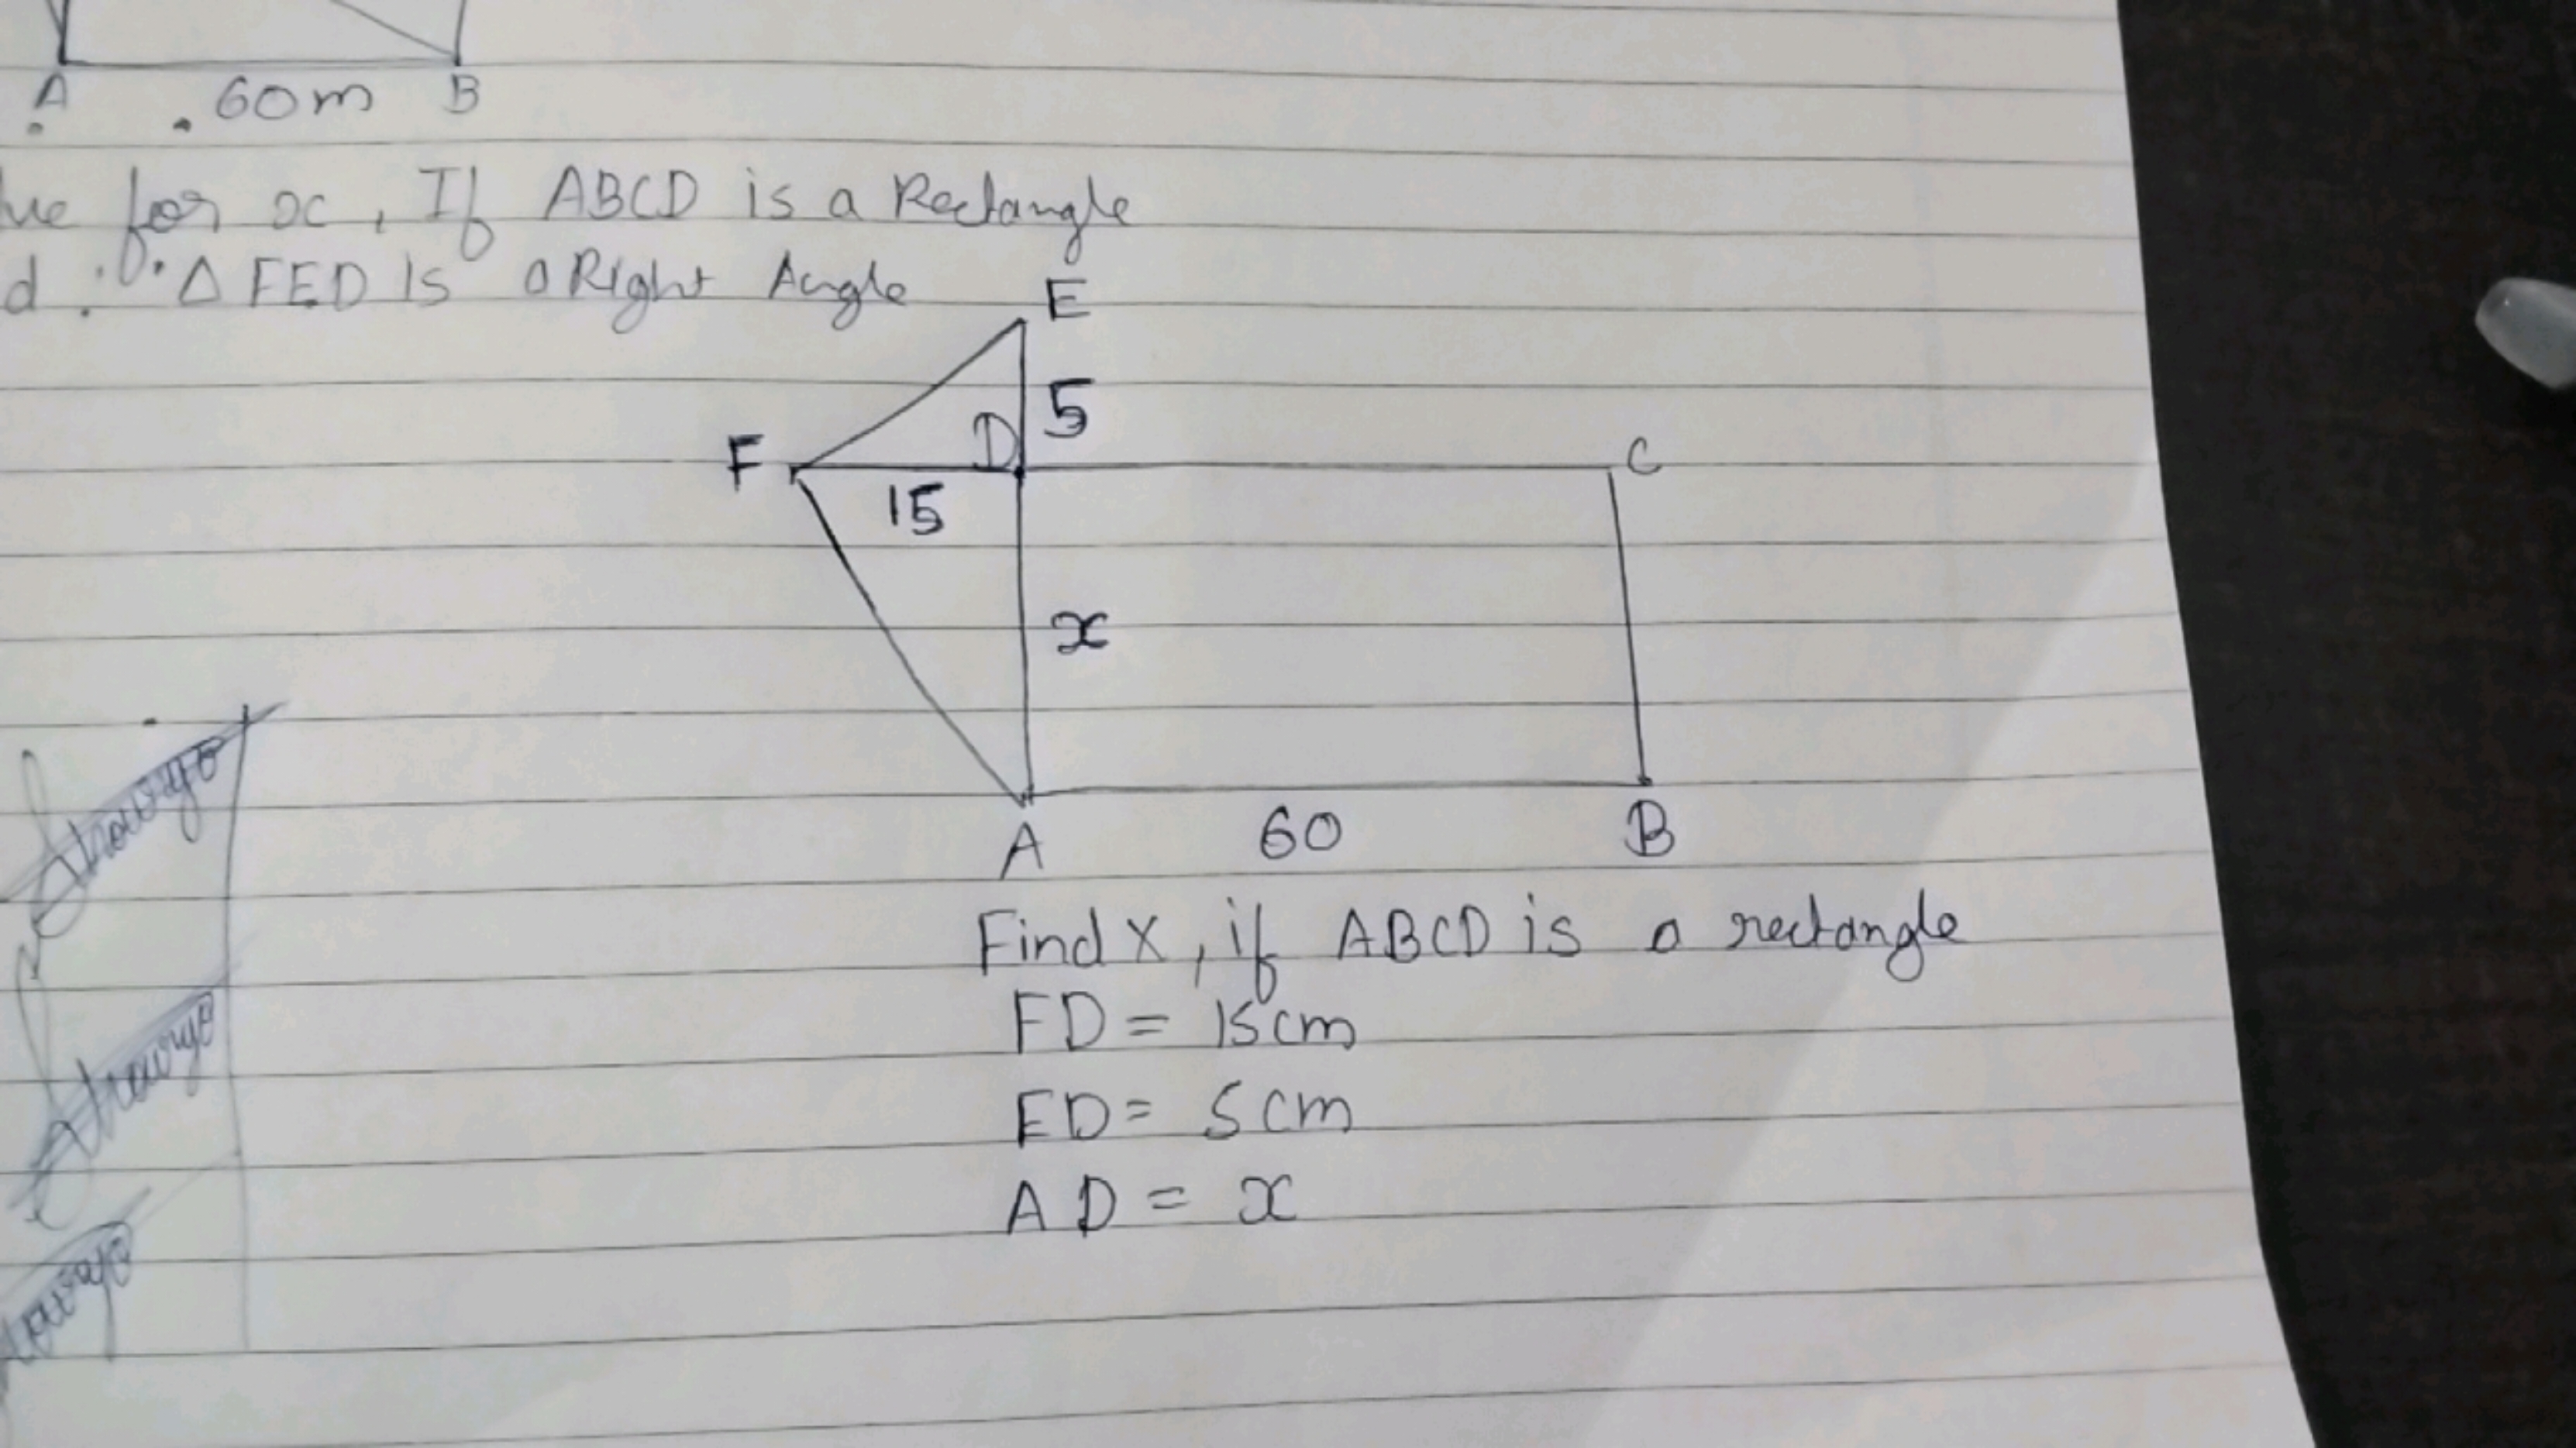 A 60m B
for x, If ABCD is a Rectangle
d. ∵ Δ FED Is a Right Angle
E
5
F D C
15
x
A 60 B
Find X, if ABCD is a rectangle
FD = 15cm
ED= 5cm
AD = x